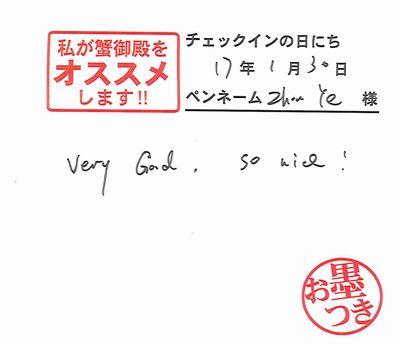 私が蟹御殿を
オススメ
します!!
チェックインの日にち
17年1月30日
ペンネーム Zhou Ye 様
Very Good, so nice!
お墨
つき